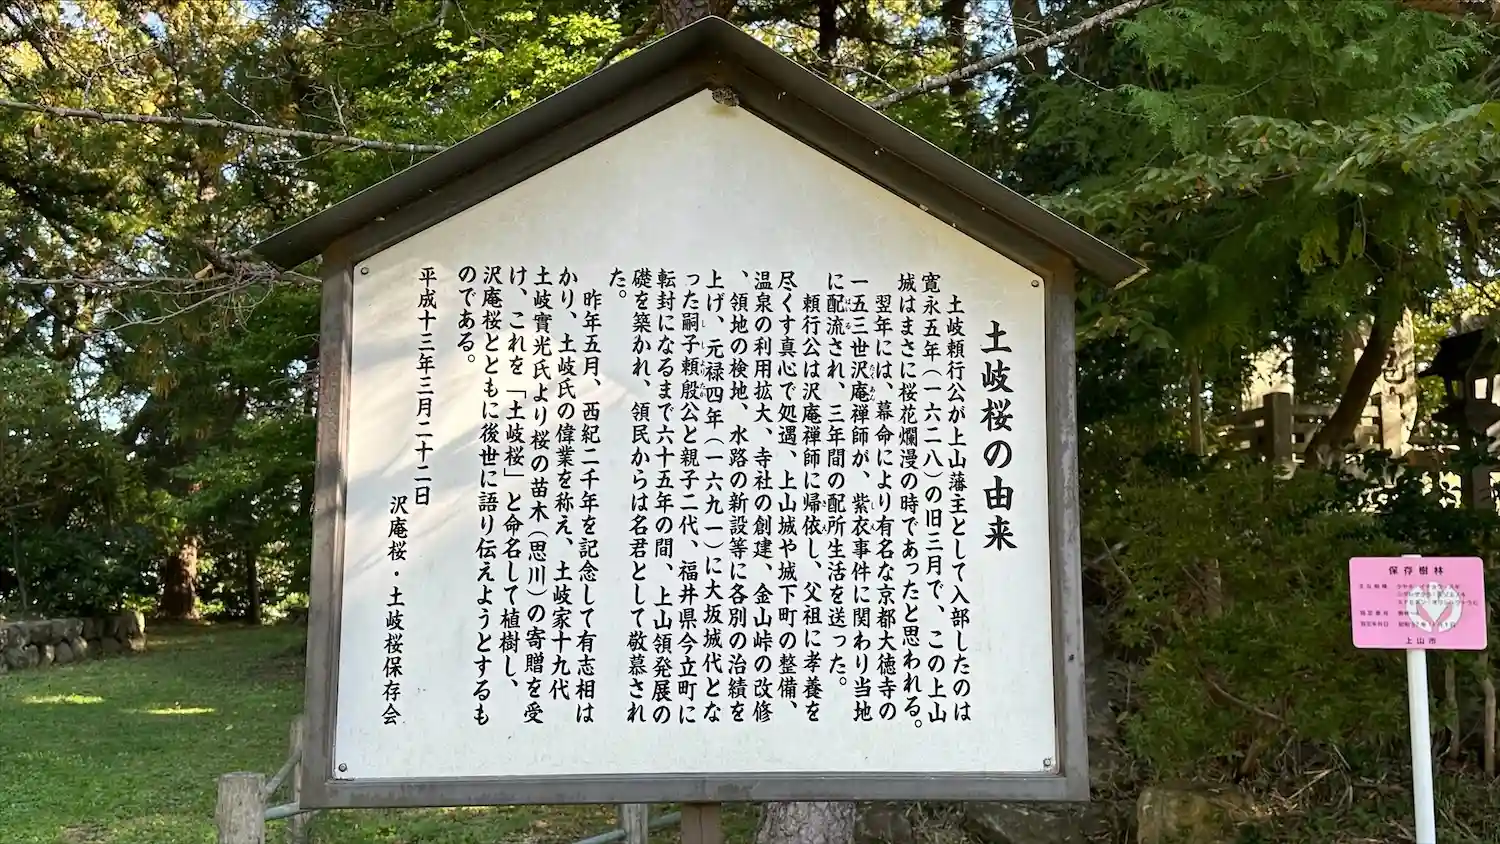 土岐桜の由来
土岐頼行公が上山藩主として入部したのは
寛永五年（一六二八）の旧三月で、この上山
城はまさに桜花爛漫の時であったと思われる。
翌年には、幕命により有名な京都大徳寺の
一五三世沢庵禅師が、紫衣事件に関わり当地
に配流され、三年間の配所生活を送った。
頼行公は沢庵禅師に帰依し、父祖に孝養を
尽くす真心で処遇、上山城や城下町の整備、
温泉の利用拡大、寺社の創建、金山峠の改修
、領地の検地、水路の新設等に各別の治績を
上げ、元禄四年（一六九一）に大坂城代とな
った嗣子頼殷公と親子二代、福井県今立町に
転封になるまで六十五年の間、上山領発展の
礎を築かれ、領民からは名君として敬慕され
た。
昨年五月、西紀二千年を記念して有志相は
かり、土岐氏の偉業を称え、土岐家十九代
土岐實光氏より桜の苗木（思川）の寄贈を受
け、これを「土岐桜」と命名して植樹し、
沢庵桜とともに後世に語り伝えようとするも
のである。
平成十三年三月二十二日
沢庵桜・土岐桜保存会
保存樹林
上山市